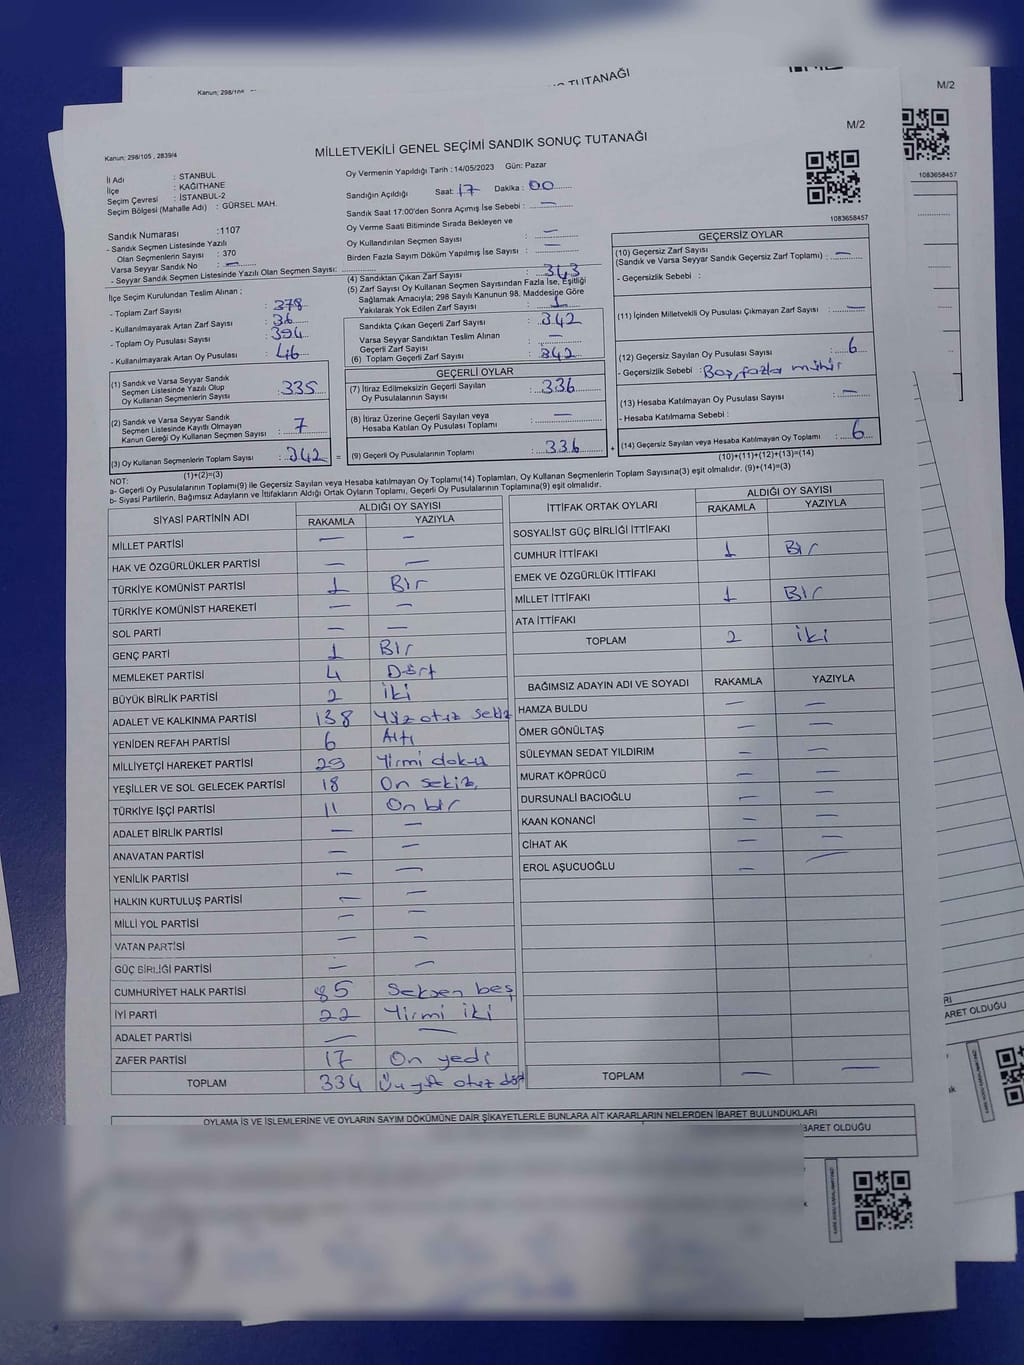 TUTANAĞI
Kanun: 298/105
M/2
1083658457
Kanun: 298/105 , 2839/4
MİLLETVEKİLİ GENEL SEÇİMİ SANDIK SONUÇ TUTANAĞI
M/2
1083658457
İl Adı : STANBUL
İlçe : KAĞITHANE
Seçim Çevresi : İSTANBUL-2
Seçim Bölgesi (Mahalle Adı) : GÜRSEL MAH.
Sandık Numarası :1107
- Sandık Seçmen Listesinde Yazılı
Olan Seçmenlerin Sayısı : 370
Varsa Seyyar Sandık No : —
- Seyyar Sandık Seçmen Listesinde Yazılı Olan Seçmen Sayısı:
Oy Vermenin Yapıldığı Tarih : 14/05/2023 Gün: Pazar
Sandığın Açıldığı Saat: 17 Dakika : 00
Sandık Saat 17:00'den Sonra Açımış İse Sebebi : —
Oy Verme Saati Bitiminde Sırada Bekleyen ve
Oy Kullandırılan Seçmen Sayısı : —
Birden Fazla Sayım Döküm Yapılmış İse Sayısı : —
İlçe Seçim Kurulundan Teslim Alınan ;
- Toplam Zarf Sayısı : 378
- Kullanılmayarak Artan Zarf Sayısı : 36
- Toplam Oy Pusulası Sayısı : 394
- Kullanılmayarak Artan Oy Pusulası : 46
(1) Sandık ve Varsa Seyyar Sandık
Seçmen Listesinde Yazılı Olup
Oy Kullanan Seçmenlerin Sayısı : 335
(2) Sandık ve Varsa Seyyar Sandık
Seçmen Listesinde Kayıtlı Olmayan
Kanun Gereği Oy Kullanan Seçmen Sayısı : 7
(3) Oy Kullanan Seçmenlerin Toplam Sayısı : 342 =
(1)+(2)=(3)
(4) Sandıktan Çıkan Zarf Sayısı : 343
(5) Zarf Sayısı Oy Kullanan Seçmen Sayısından Fazla İse, Eşitliği
Sağlamak Amacıyla; 298 Sayılı Kanunun 98. Maddesine Göre
Yakılarak Yok Edilen Zarf Sayısı : 1
Sandıkta Çıkan Geçerli Zarf Sayısı : 342
Varsa Seyyar Sandıktan Teslim Alınan
Geçerli Zarf Sayısı : —
(6) Toplam Geçerli Zarf Sayısı : 342
GEÇERLİ OYLAR
(7) İtiraz Edilmeksizin Geçerli Sayılan
Oy Pusulalarının Sayısı : 336
(8) İtiraz Üzerine Geçerli Sayılan veya
Hesaba Katılan Oy Pusulası Toplamı : —
(9) Geçerli Oy Pusulalarının Toplamı : 336 +
GEÇERSİZ OYLAR
(10) Geçersiz Zarf Sayısı
(Sandık ve Varsa Seyyar Sandık Geçersiz Zarf Toplamı) : —
- Geçersizlik Sebebi :
(11) İçinden Milletvekili Oy Pusulası Çıkmayan Zarf Sayısı : —
(12) Geçersiz Sayılan Oy Pusulası Sayısı : 6
- Geçersizlik Sebebi : Boş, fazla mühür
(13) Hesaba Katılmayan Oy Pusulası Sayısı : —
- Hesaba Katılmama Sebebi :
(14) Geçersiz Sayılan veya Hesaba Katılmayan Oy Toplamı : 6
(10)+(11)+(12)+(13)=(14)
NOT:
a- Geçerli Oy Pusulalarının Toplamı(9) ile Geçersiz Sayılan veya Hesaba katılmayan Oy Toplamı(14) Toplamları, Oy Kullanan Seçmenlerin Toplam Sayısına(3) eşit olmalıdır. (9)+(14)=(3)
b- Siyasi Partilerin, Bağımsız Adayların ve İttifakların Aldığı Ortak Oyların Toplamı, Geçerli Oy Pusulalarının Toplamına(9) eşit olmalıdır.
SİYASİ PARTİNİN ADI ALDIĞI OY SAYISI
RAKAMLA YAZIYLA
MİLLET PARTİSİ — —
HAK VE ÖZGÜRLÜKLER PARTİSİ — —
TÜRKİYE KOMÜNİST PARTİSİ 1 Bir
TÜRKİYE KOMÜNİST HAREKETİ — —
SOL PARTİ — —
GENÇ PARTİ 1 Bir
MEMLEKET PARTİSİ 4 Dört
BÜYÜK BİRLİK PARTİSİ 2 iki
ADALET VE KALKINMA PARTİSİ 138 Yüz otuz sekiz
YENİDEN REFAH PARTİSİ 6 Altı
MİLLİYETÇİ HAREKET PARTİSİ 29 Yirmi dokuz
YEŞİLLER VE SOL GELECEK PARTİSİ 18 On sekiz
TÜRKİYE İŞÇİ PARTİSİ 11 On bir
ADALET BİRLİK PARTİSİ — —
ANAVATAN PARTİSİ — —
YENİLİK PARTİSİ — —
HALKIN KURTULUŞ PARTİSİ — —
MİLLİ YOL PARTİSİ — —
VATAN PARTİSİ — —
GÜÇ BİRLİĞİ PARTİSİ — —
CUMHURİYET HALK PARTİSİ 85 Seksen beş
İYİ PARTİ 22 Yirmi iki
ADALET PARTİSİ — —
ZAFER PARTİSİ 17 On yedi
TOPLAM 334 Üç yüz otuz dört
İTTİFAK ORTAK OYLARI ALDIĞI OY SAYISI
RAKAMLA YAZIYLA
SOSYALİST GÜÇ BİRLİĞİ İTTİFAKI
CUMHUR İTTİFAKI 1 Bir
EMEK VE ÖZGÜRLÜK İTTİFAKI
MİLLET İTTİFAKI 1 Bir
ATA İTTİFAKI
TOPLAM 2 iki
BAĞIMSIZ ADAYIN ADI VE SOYADI RAKAMLA YAZIYLA
HAMZA BULDU — —
ÖMER GÖNÜLTAŞ — —
SÜLEYMAN SEDAT YILDIRIM — —
MURAT KÖPRÜCÜ — —
DURSUNALİ BACIOĞLU — —
KAAN KONANCİ — —
CİHAT AK — —
EROL AŞUCUOĞLU — —
TOPLAM — —
OYLAMA İŞ VE İŞLEMLERİNE VE OYLARIN SAYIM DÖKÜMÜNE DAİR ŞİKAYETLERLE BUNLARA AİT KARARLARIN NELERDEN İBARET BULUNDUKLARI
BARET OLDUĞU
RI
ARET OLDUĞU